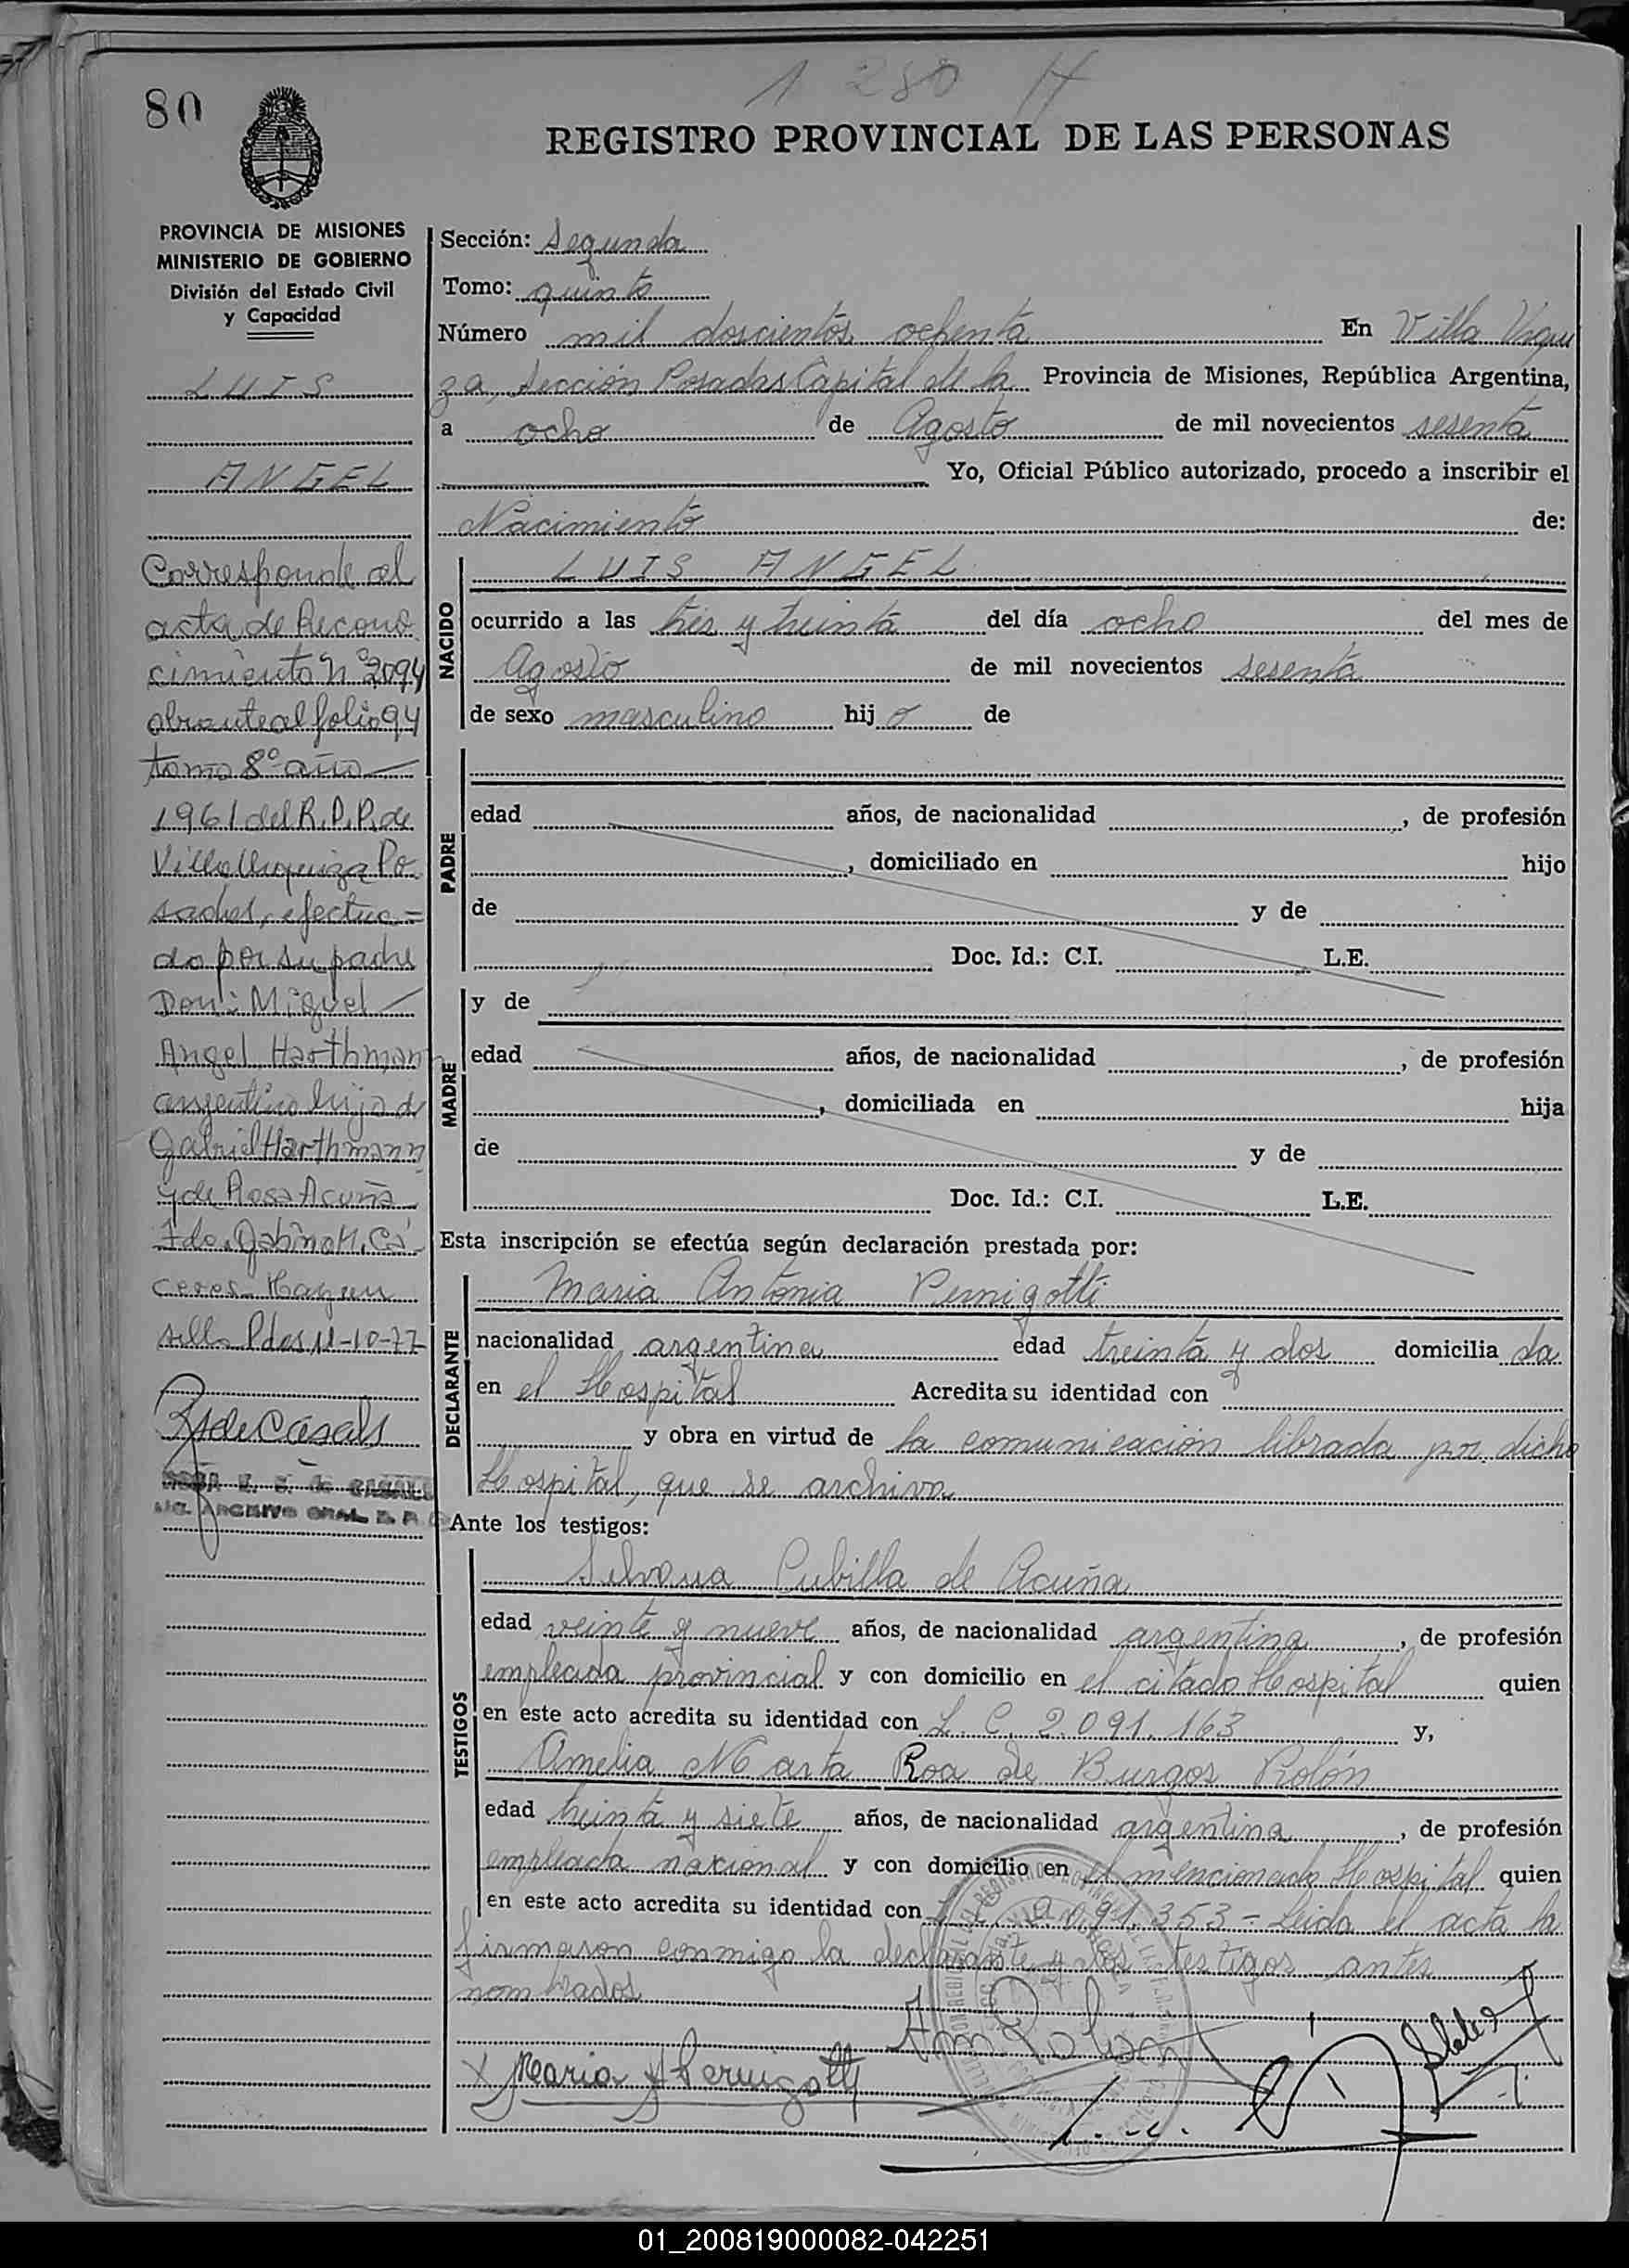 1 280 H
80
REGISTRO PROVINCIAL DE LAS PERSONAS
PROVINCIA DE MISIONES
MINISTERIO DE GOBIERNO
División del Estado Civil
y Capacidad
LUIS
ANGEL
Corresponde al
acta de Recono
cimiento Nº 2094
obrante al folio 94
tomo 8º año
1961 del R.P.P. de
Villa Urquiza Po
sadas, efectua=
do por su padre
Don: Miguel
Angel Harthmann
argentino hijo de
Gabriel Harthmann
y de Rosa Acuña
Fdo. Gabino M. Cá
ceres Hay un
sello Pdas 11-10-77
R S de Casals
ROSA E. S. de CASALS
ARCHIVO GRAL. R. P.
Sección: Segunda
Tomo: quinto
Número mil doscientos ochenta En Villa Urqui
za, Sección Posadas Capital de la Provincia de Misiones, República Argentina,
a ocho de Agosto de mil novecientos sesenta
Yo, Oficial Público autorizado, procedo a inscribir el
Nacimiento de:
NACIDO
LUIS ANGEL
ocurrido a las tres y treinta del día ocho del mes de
Agosto de mil novecientos sesenta
de sexo masculino hij o de
PADRE
edad años, de nacionalidad , de profesión
, domiciliado en hijo
de y de
Doc. Id.: C.I. L.E.
MADRE
y de
edad años, de nacionalidad , de profesión
, domiciliada en hija
de y de
Doc. Id.: C.I. L.E.
Esta inscripción se efectúa según declaración prestada por:
DECLARANTE
Maria Antonia Pernigotti
nacionalidad argentina edad treinta y dos domicilia da
en el Hospital Acredita su identidad con
y obra en virtud de la comunicación librada por dicho
Hospital, que se archiva
Ante los testigos:
TESTIGOS
Silvena Cubilla de Acuña
edad veinte y nueve años, de nacionalidad argentina , de profesión
empleada provincial y con domicilio en el citado Hospital quien
en este acto acredita su identidad con L. C. 2.091.163 y,
Amelia Marta Roa de Burgos Rolón
edad treinta y siete años, de nacionalidad argentina , de profesión
empleada nacional y con domicilio en el mencionado Hospital quien
en este acto acredita su identidad con 353 - Leida el acta la
firmaron conmigo la declarante y los testigos antes
nombrados
Am. Rolon
Maria A Pernigotti
01_200819000082-042251